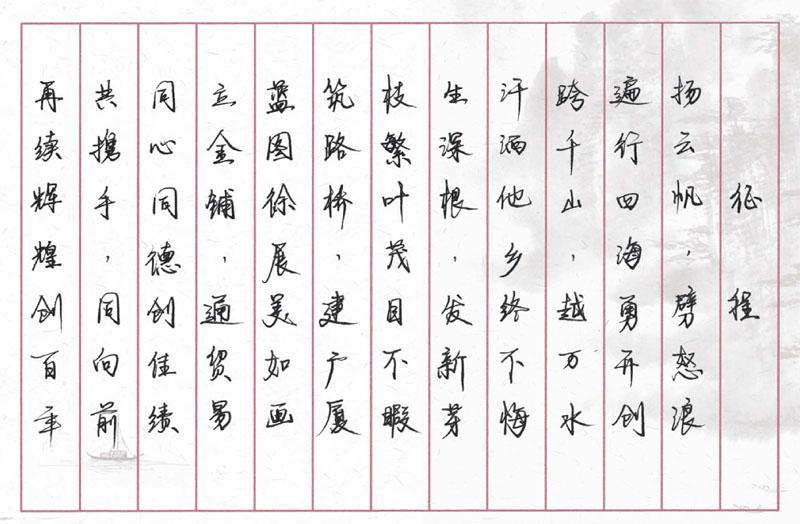 征程
扬云帆，劈怒浪
遍行四海勇开创
跨千山，越万水
汗洒他乡终不悔
生深根，发新芽
枝繁叶茂目不暇
筑路桥，建广厦
蓝图徐展美如画
立金铺，通贸易
同心同德创佳绩
共携手，同向前
再续辉煌创百年